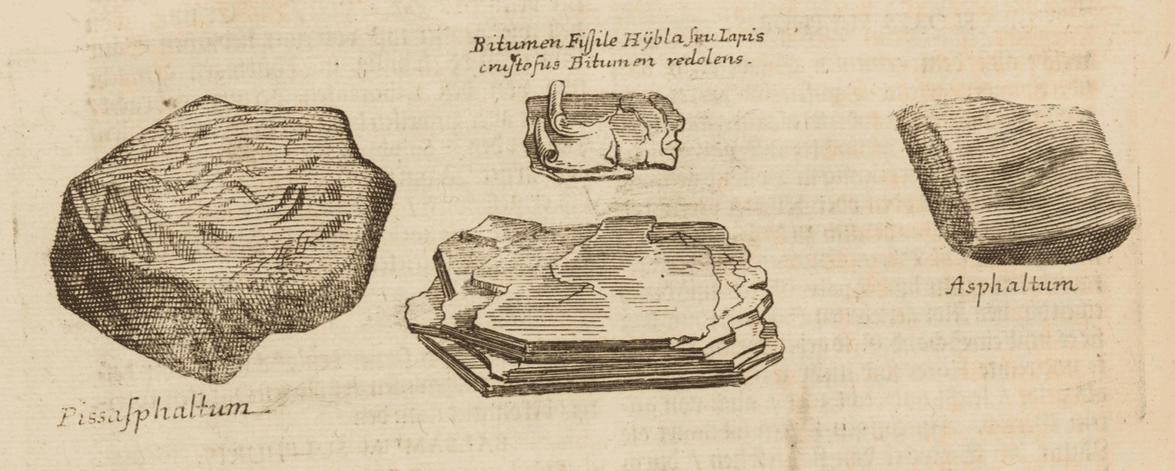 Bitumen Fiſſile Hÿbla ſeu Lapis
cruſtoſus Bitumen redolens.
Asphaltum
Pissaſphaltum